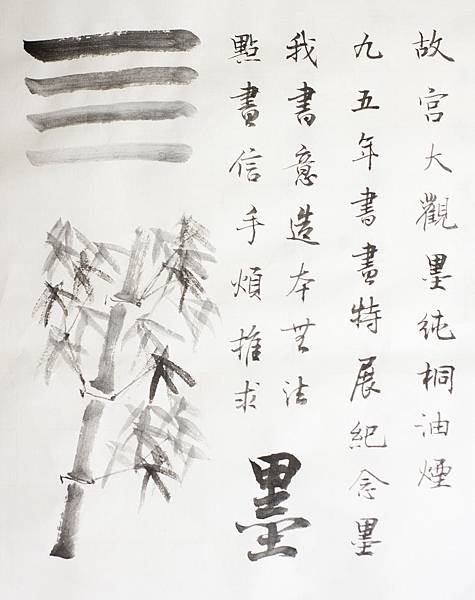 故宮大觀墨純桐油煙
九五年書畫特展紀念墨
我書意造本無法
點畫信手煩推求
墨